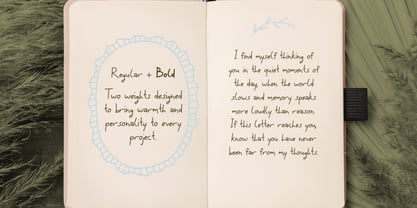 Regular + Bold
Two weights designed
to bring warmth and
personality to every
project.
I find myself thinking of
you in the quiet moments of
the day, when the world
slows and memory speaks
more loudly than reason.
If this letter reaches you,
know that you have never
been far from my thoughts.